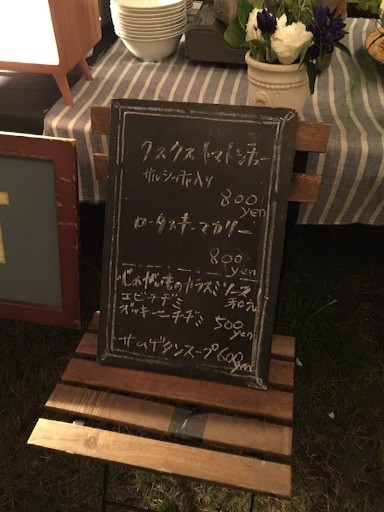 クスクストマトシチュー
サルシッチャ入り
800
yen
ロータスキーマカリー
800
yen
じゃが芋のタラモソース
和え
エビチヂミ
ズッキーニチヂミ 500
yen
サムゲタンスープ 600
yen